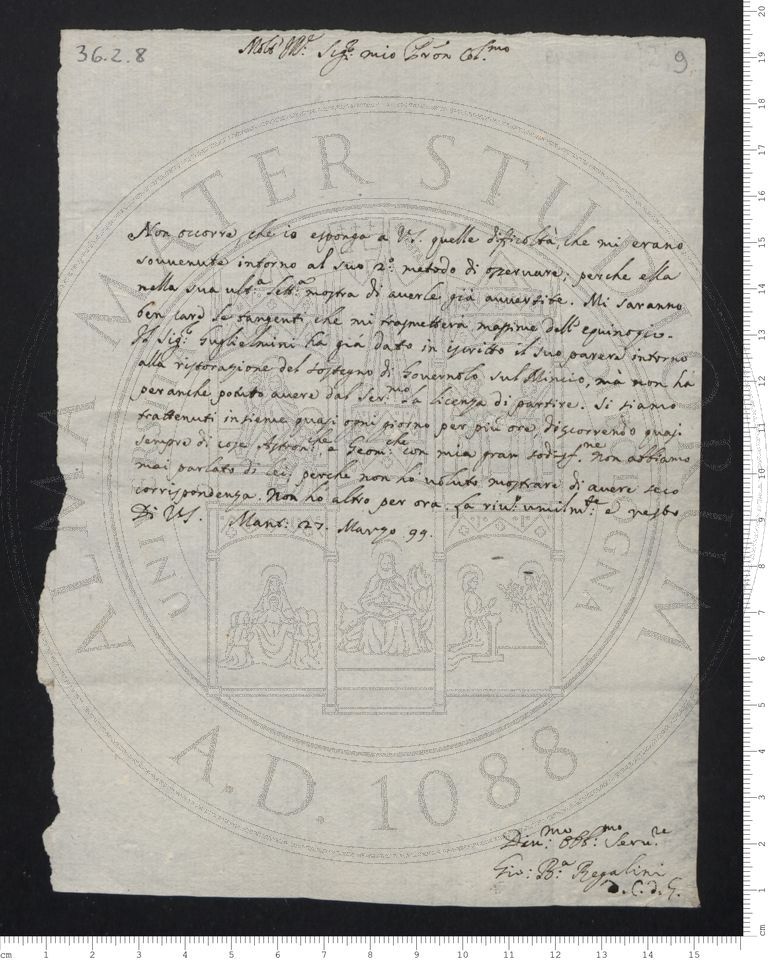 36.2.8
9
Molto Ill.re Sig.r mio Pron Col.mo
Non occorre che io esponga a VS. quelle difficoltà, che mi erano
sovvenute intorno al suo 2.o metodo di osservare; perche ella
nella sua ult.a lett.a mostra di averle già avvertite. Mi saranno
ben care le tangenti che mi trasmetterà massime dell'equinozio.
Il Sig.r Guglielmini ha già dato in iscritto il suo parere intorno
alla ristorazione del sostegno di Governolo sul Mincio, mà non hà
per anche potuto avere dal Ser.mo la licenza di partire. Si siamo
trattenuti insieme quasi ogni giorno per più ore, discorrendo quasi
sempre di cose Astron.che e Geom.che con mia gran sodisf.ne Non abbiamo
mai parlato di lei; perche non ho voluto mostrare di avere seco
corrispondenza. Non ho altro per ora. La riv.o umilm.te e resto
Di VS. Mant: 27. Marzo 99.
Div.mo Obb.mo Serv.re
Gio: B.a Regalini
d.C.d.G.
ALMA MATER STUDIORUM
A.D. 1088
cm 1 2 3 4 5 6 7 8 9 10 11 12 13 14 15
20
19
18
17
16
15
14
13
12
11
10
9
8
7
6
5
4
3
2
1
cm